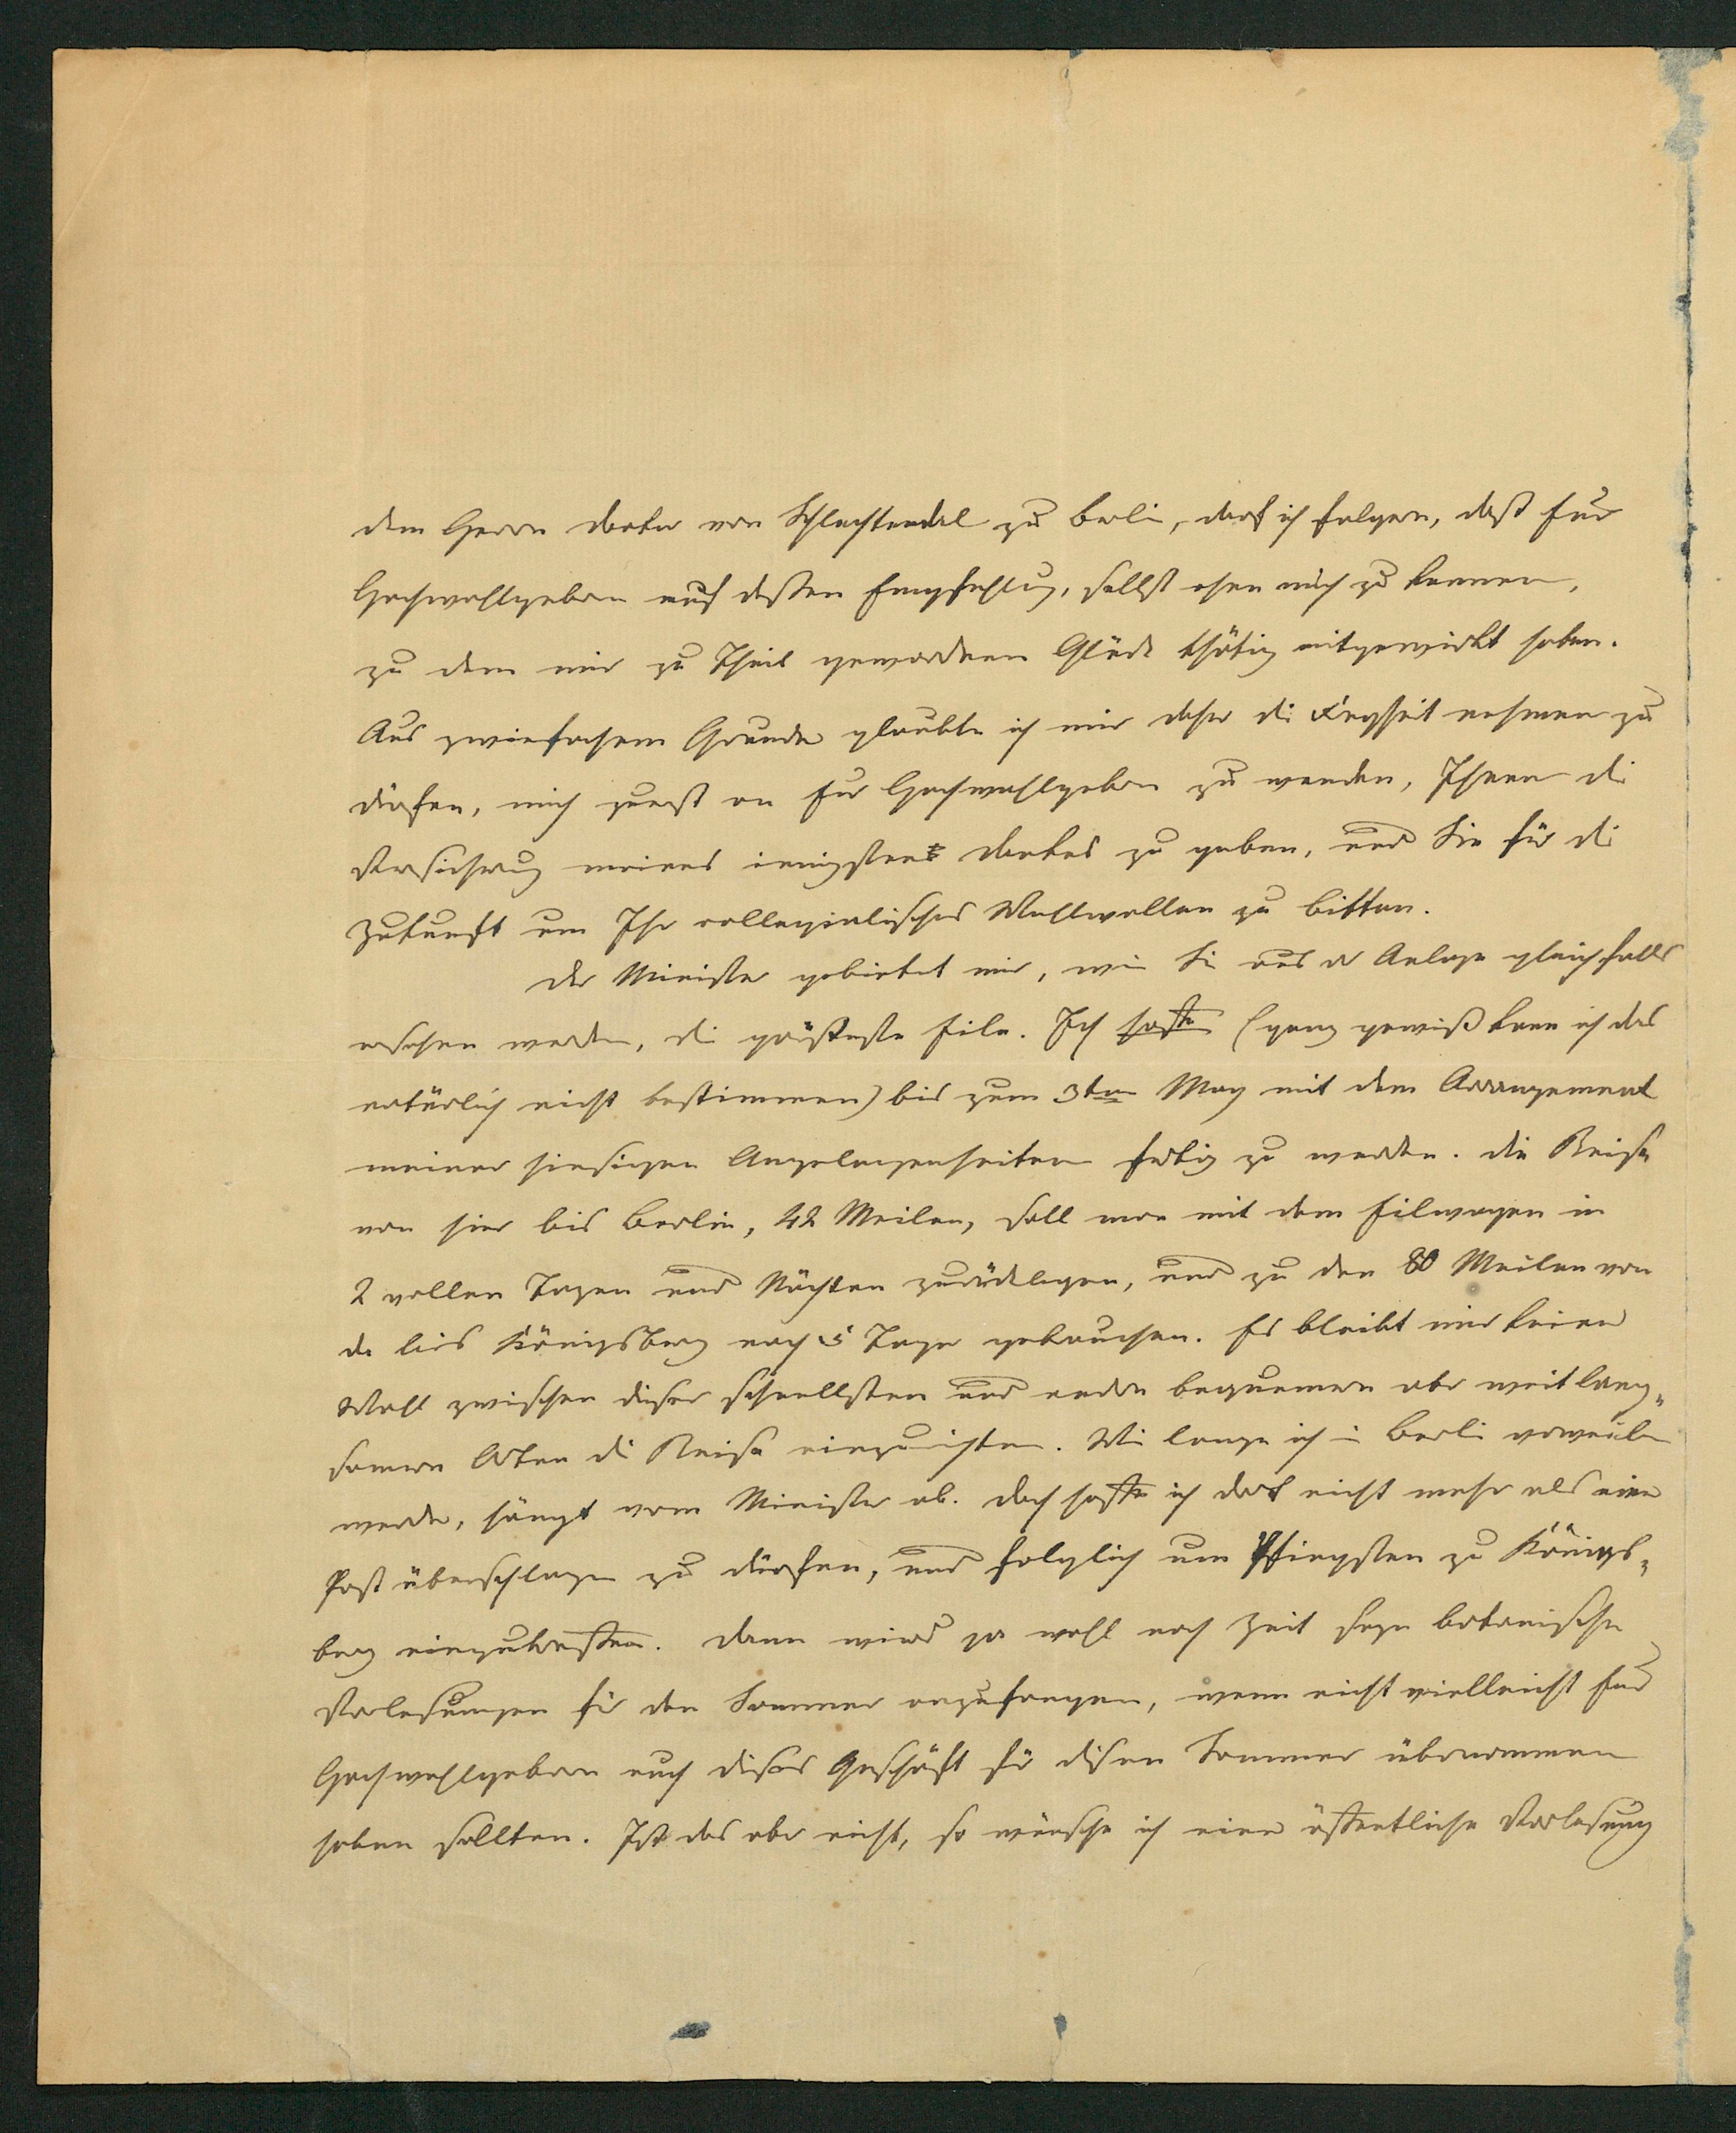 dem Herrn Doctor von Schlechtendal zu Berlin, darf ich folgern, daß Eur
Hochwohlgeboren auf dessen Empfehlung, selbst ohne mich zu kennen,
zu dem mir zu Theil gewordnen Glück thätig mitgewirkt haben.
Aus zwiefachem Grunde glaubte ich mir daher die Freyheit nehmen zu
dürfen, mich zuerst an Eur Hochwohlgeborn zu wenden, Ihnen die
Versichrung meines innigsten Dankes zu geben, und Sie für die
Zukunft um Ihr collegialisches Wohlwollen zu bitten.
Der Minister gebietet mir, wie Sie aus der Anlage gleichfalls
ersehen werden, die größeste Eile. Ich hoffe (ganz gewiß kann ich das
natürlich nicht bestimmen) bis zum 3ten May mit dem Arrangement
meiner hiesigen Angelegenheiten fertig zu werden. Die Reise
von hier bis Berlin, 42 Meilen, soll man mit dem Eilwagen in
2 vollen Tagen und Nächten zurücklegen, und zu den 80 Meilen von
da bis Königsberg noch 5 Tage gebrauchen. Es bleibt mir keine
Wahl zwischen dieser schnellsten und andern bequemern aber weit lang-
samern Arten die Reise einzurichten. Wie lange ich in Berlin verweilen
werde, hängt vom Minister ab. Doch hoffe ich dort nicht mehr als eine
Post überschlagen zu dürfen, und folglich um Pfingsten zu Königs-
berg einzutreffen. Dann wird ja wohl noch Zeit seyn botanische
Vorlesungen für den Sommer anzufangen, wenn nicht vielleicht Eur
Hochwohlgeboren auch dieses Geschäft für diesen Sommer übernommen
haben sollten. Ist das aber nicht, so wünsche ich eine öffentliche Vorlesung